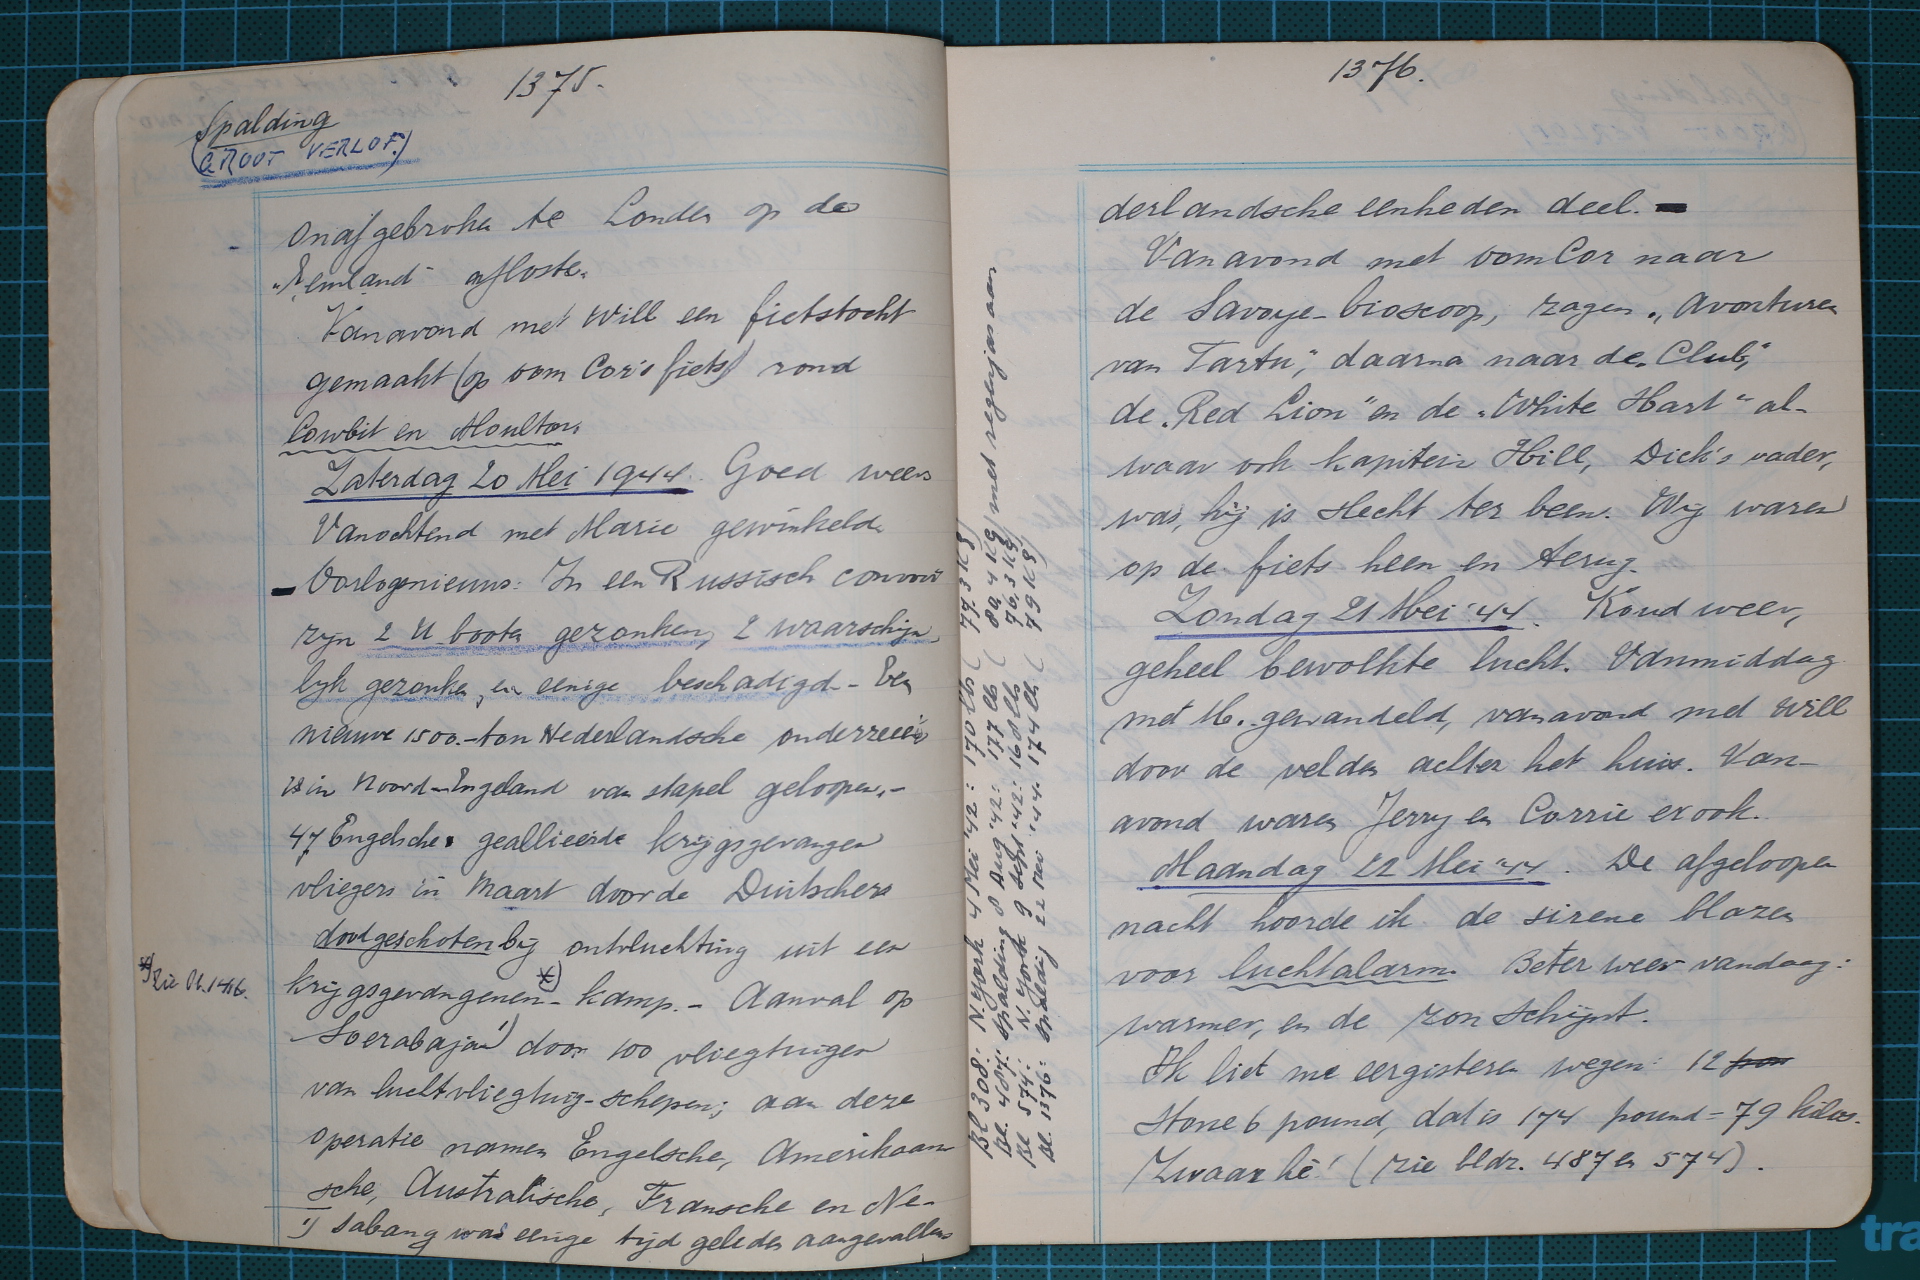 1375.
Spalding
(GROOT VERLOF.)
onafgebroken te Londen op de
"Eemland" afloste.
Vanavond met Will een fietstocht
gemaakt (op oom Cor's fiets) rond
Cowbit en Moulton.
Zaterdag 20 Mei 1944. Goed weer
Vanochtend met Marie gewinkeld.
Oorlogsnieuws: In een Russisch convooi
zijn 2 U booten gezonken, 2 waarschijn
lijk gezonken, en eenige beschadigd - Een
nieuwe 1500.-ton Nederlandsche onderzeeër
is in Noord-Engeland van stapel geloopen.-
47 Engelsche geallieerde krijgsgevangen
vliegers in Maart door de Duitschers
doodgeschoten bij ontvluchting uit een
*) Zie bl. 1416.
krijgsgevangenen *) - kamp. - Aanval op
Soerabaja 1) door 100 vliegtuigen
van luchtvliegtuig-schepen; aan deze
operatie namen Engelsche, Amerikaan
sche, Australische, Fransche en Ne-
1) Sabang was eenige tijd geleden aangevallen
1376.
derlandsche eenheden deel. -
Vanavond met oom Cor naar
de Savoye-bioscoop, zagen „Avonturen
van Tartu", daarna naar de „Club,"
de „Red Lion" en de „White Hart" al-
waar ook kapitein Hill, Dick's vader,
was, hij is slecht ter been. Wij waren
op de fiets heen en terug.
Zondag 21 Mei '44. Koud weer,
geheel bewolkte lucht. Vanmiddag
met M. gewandeld, vanavond met Will
door de velden achter het huis. Van-
avond waren Jerry en Corrie er ook.
Maandag 22 Mei '44. De afgeloopen
nacht hoorde ik de sirene blazen
voor luchtalarm. Beter weer vandaag:
warmer, en de zon schijnt.
Ik liet me eergisteren wegen: 12
Stone 6 pound, dat is 174 pound = 79 kilos.
Zwaar hè! (Zie bldz. 487 en 574).
Bl 308: N.York 4 Mei '42: 170 lbs (77.3 kg)
Bl. 487: Spalding 8 Aug '42: 177 lb (80,4 kg) met regenjas aan
Bl 574: N.York 9 Sept '42: 168 lbs (76,3 kg)
Bl. 1376: Spalding 22 Mei '44: 174 lb (79 kg)